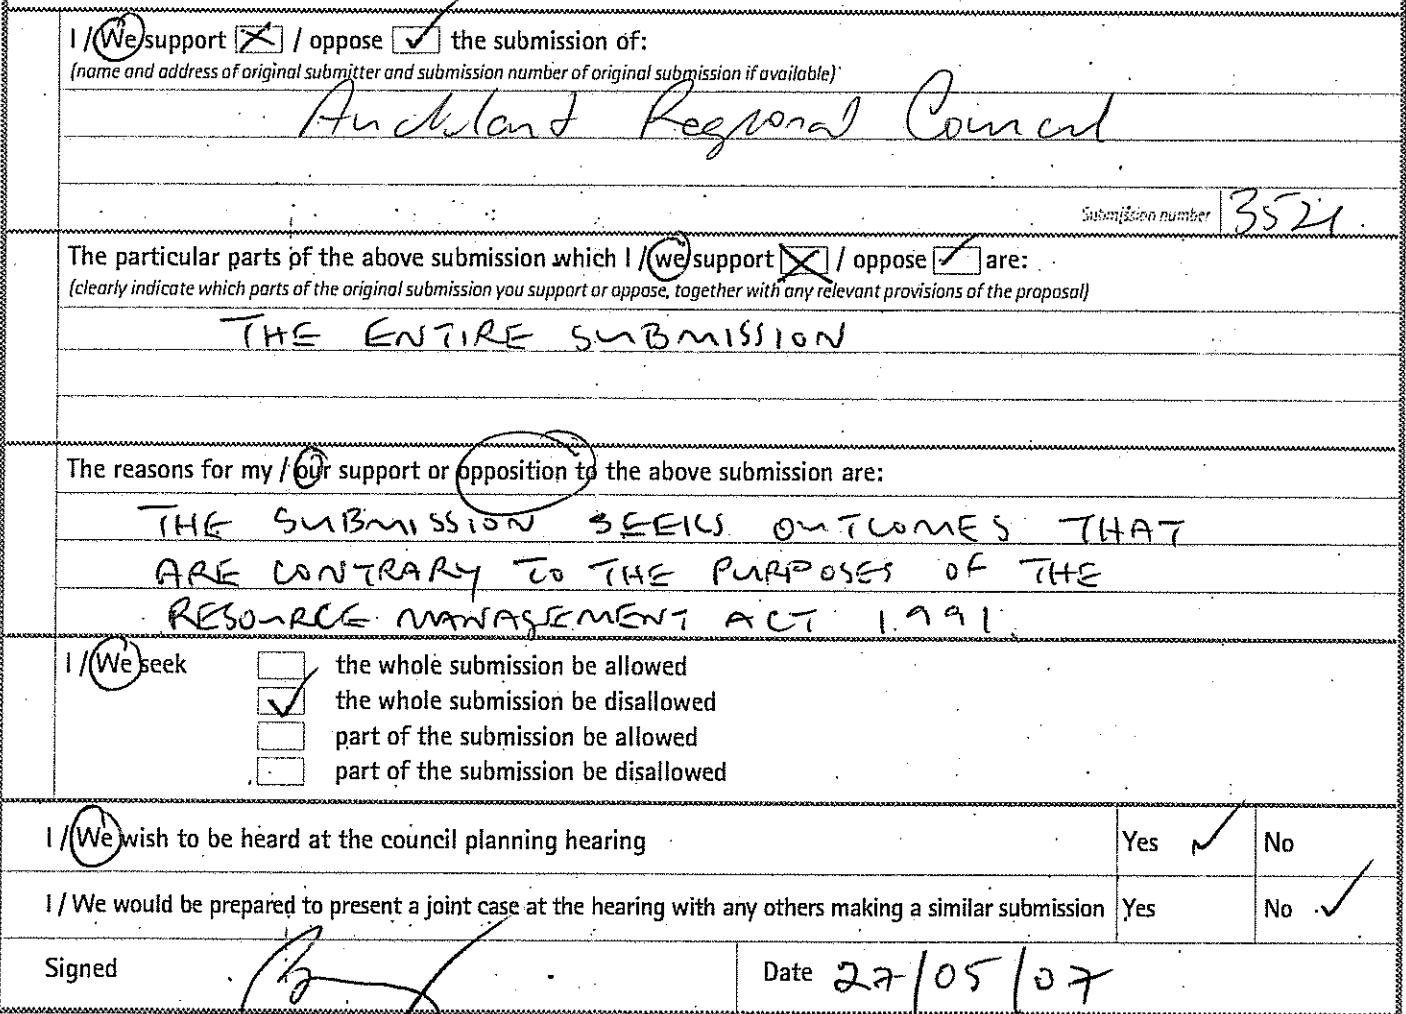 I / We support ☒ / oppose ☑ the submission of:
(name and address of original submitter and submission number of original submission if available)
Auckland Regional Council
Submission number 3521
The particular parts of the above submission which I / we support ☒ / oppose ☑ are:
(clearly indicate which parts of the original submission you support or oppose, together with any relevant provisions of the proposal)
THE ENTIRE SUBMISSION
The reasons for my / our support or opposition to the above submission are:
THE SUBMISSION SEEKS OUTCOMES THAT
ARE CONTRARY TO THE PURPOSES OF THE
RESOURCE MANAGEMENT ACT 1991.
I / We seek ☐ the whole submission be allowed
☑ the whole submission be disallowed
☐ part of the submission be allowed
☐ part of the submission be disallowed
I / We wish to be heard at the council planning hearing Yes ✓ No
I / We would be prepared to present a joint case at the hearing with any others making a similar submission Yes No ✓
Signed Date 27/05/07